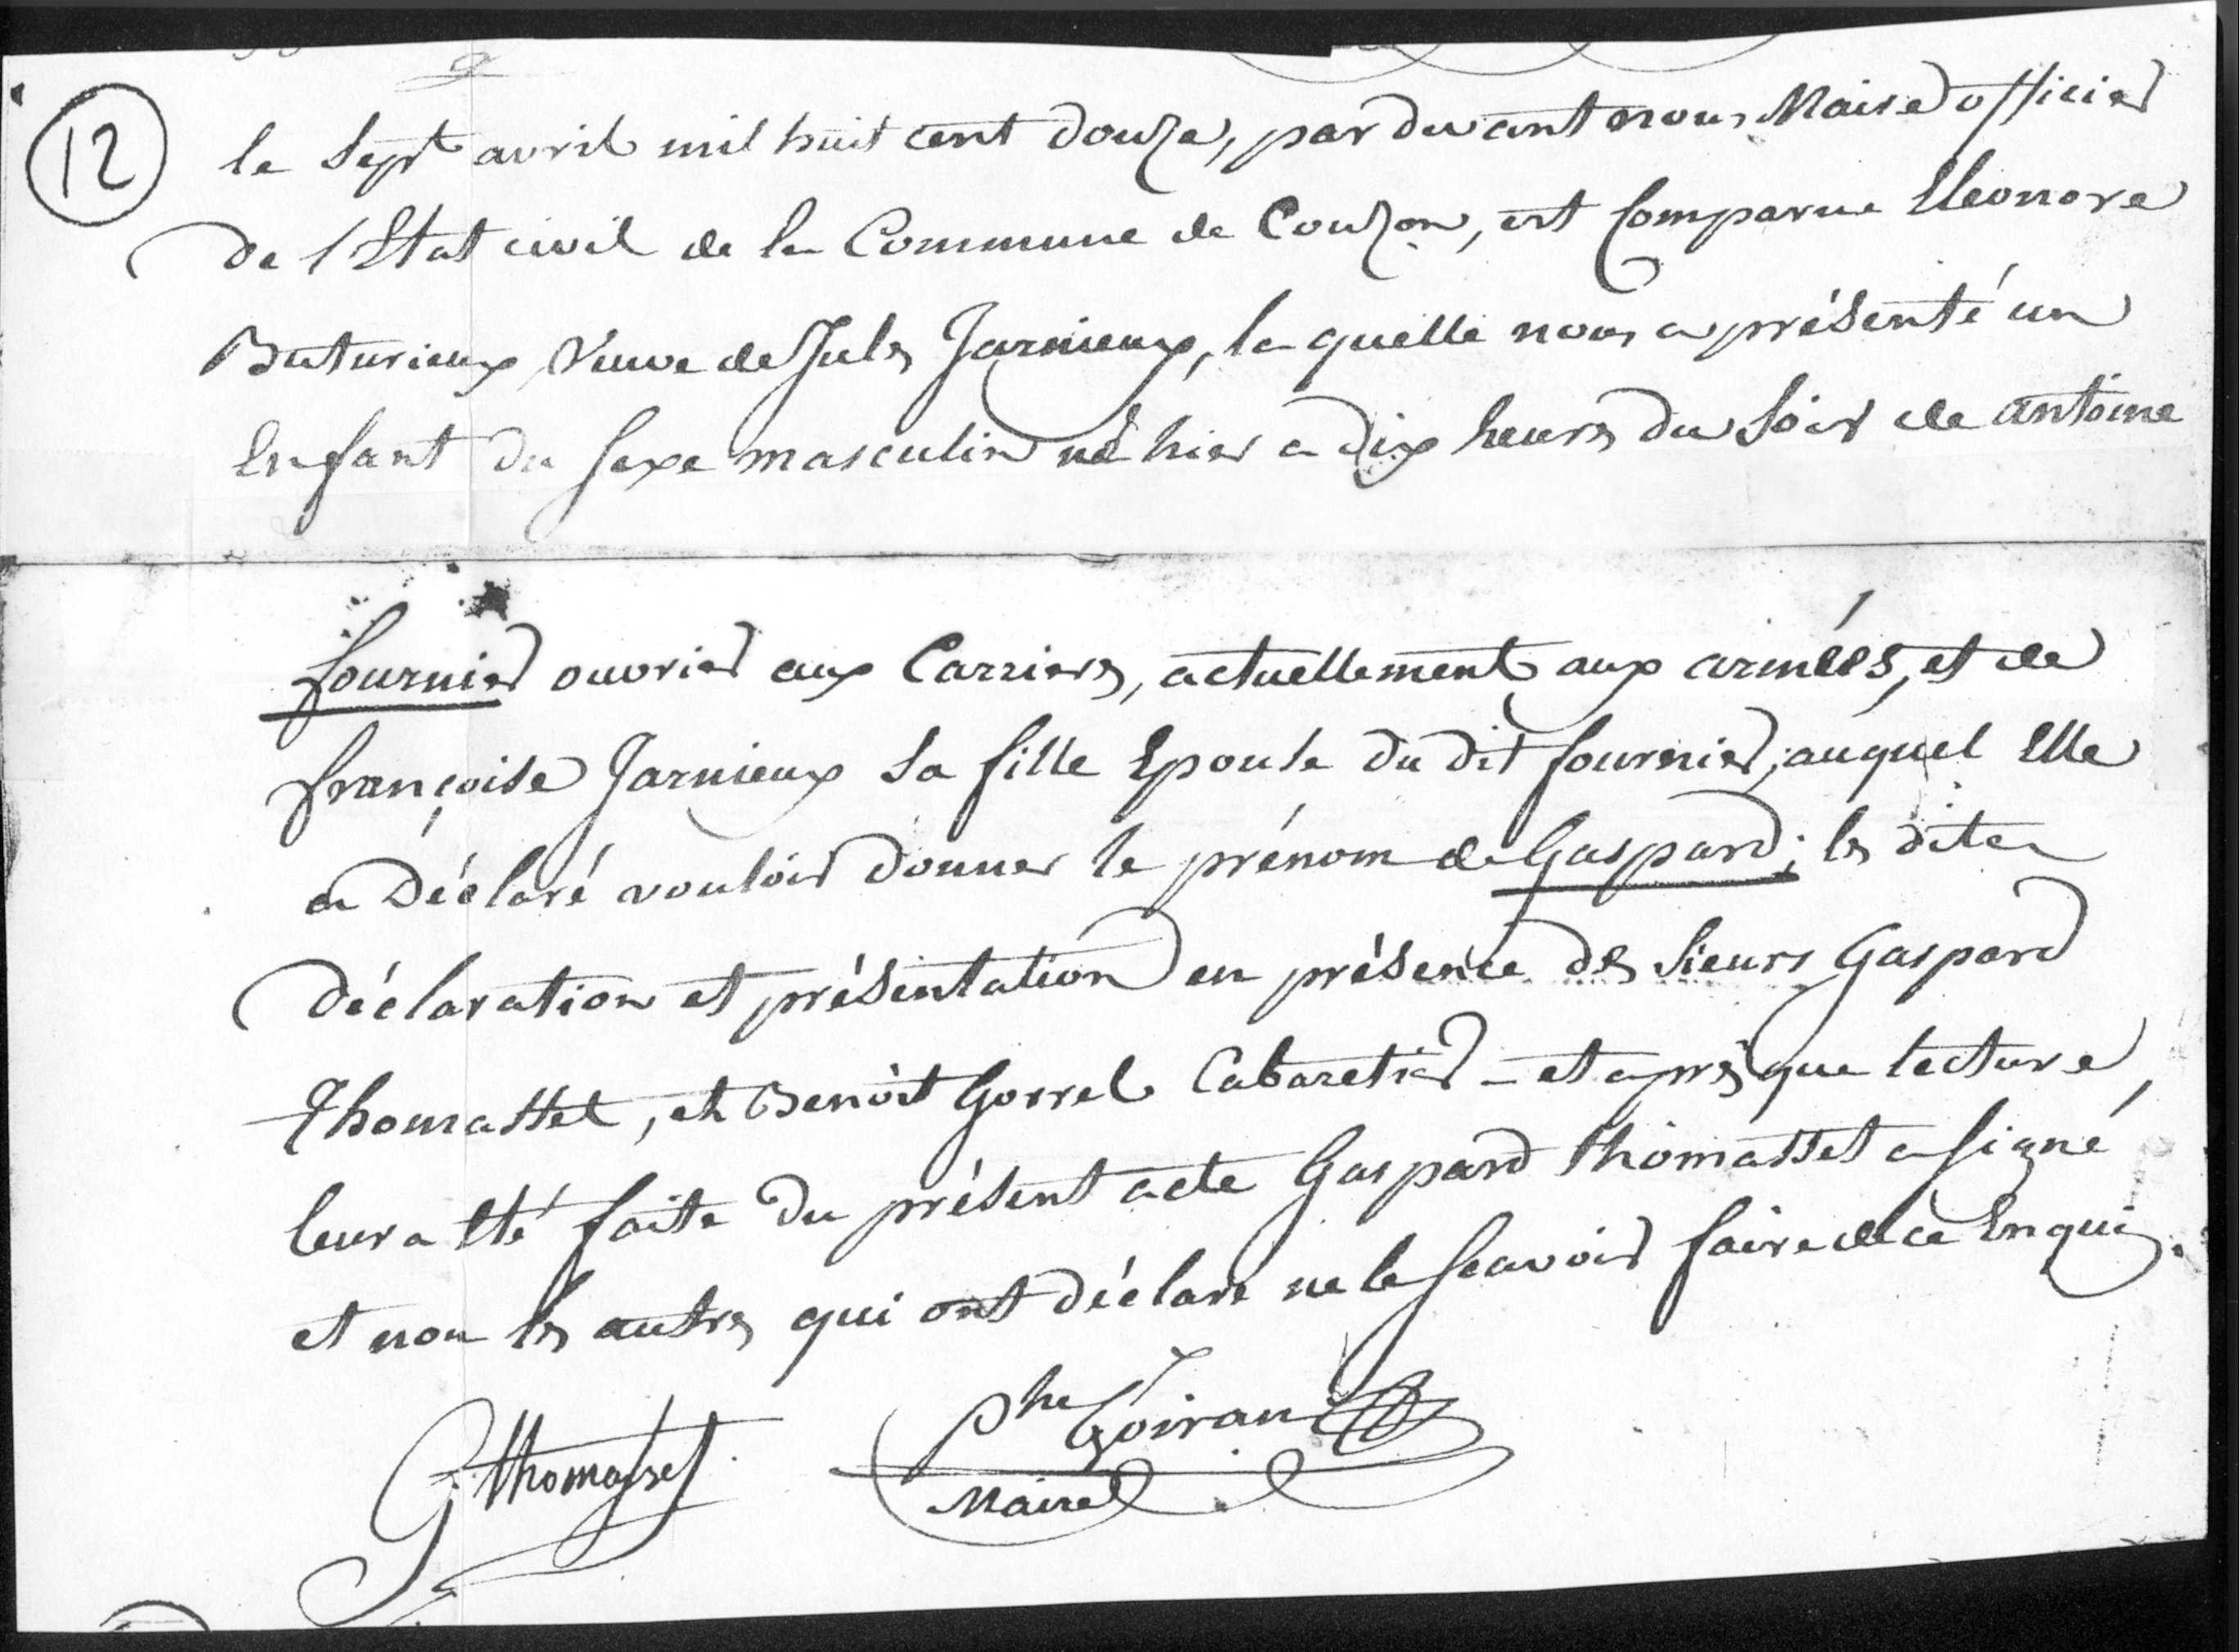 12
le Sept avril mil huit cent douze, pardevant nous Maire officier
de l'Etat civil de la Commune de Couzon, est Comparue Eleonore
Buturieux veuve de Jules Jarnieux, la quelle nous a présenté un
Enfant du sexe masculin né hier a dix heures du soir de antoine
fournier ouvrier aux Carriers, actuellement aux armées, et de
françoise Jarnieux sa fille Epouse du dit fournier; auquel Elle
a Déclaré vouloir donner le prénom de Gaspard; les dites
déclaration et présentation en présence des sieurs Gaspard
Thomasset, et Benoit Gorrel Cabaretier - et après que lecture
leur a Eté faite du présent acte Gaspard thomasset a signé
et non les autres qui ont déclaré ne le scavoir faire de ce Enquis.
G. thomasset
phe Goiran
Maire